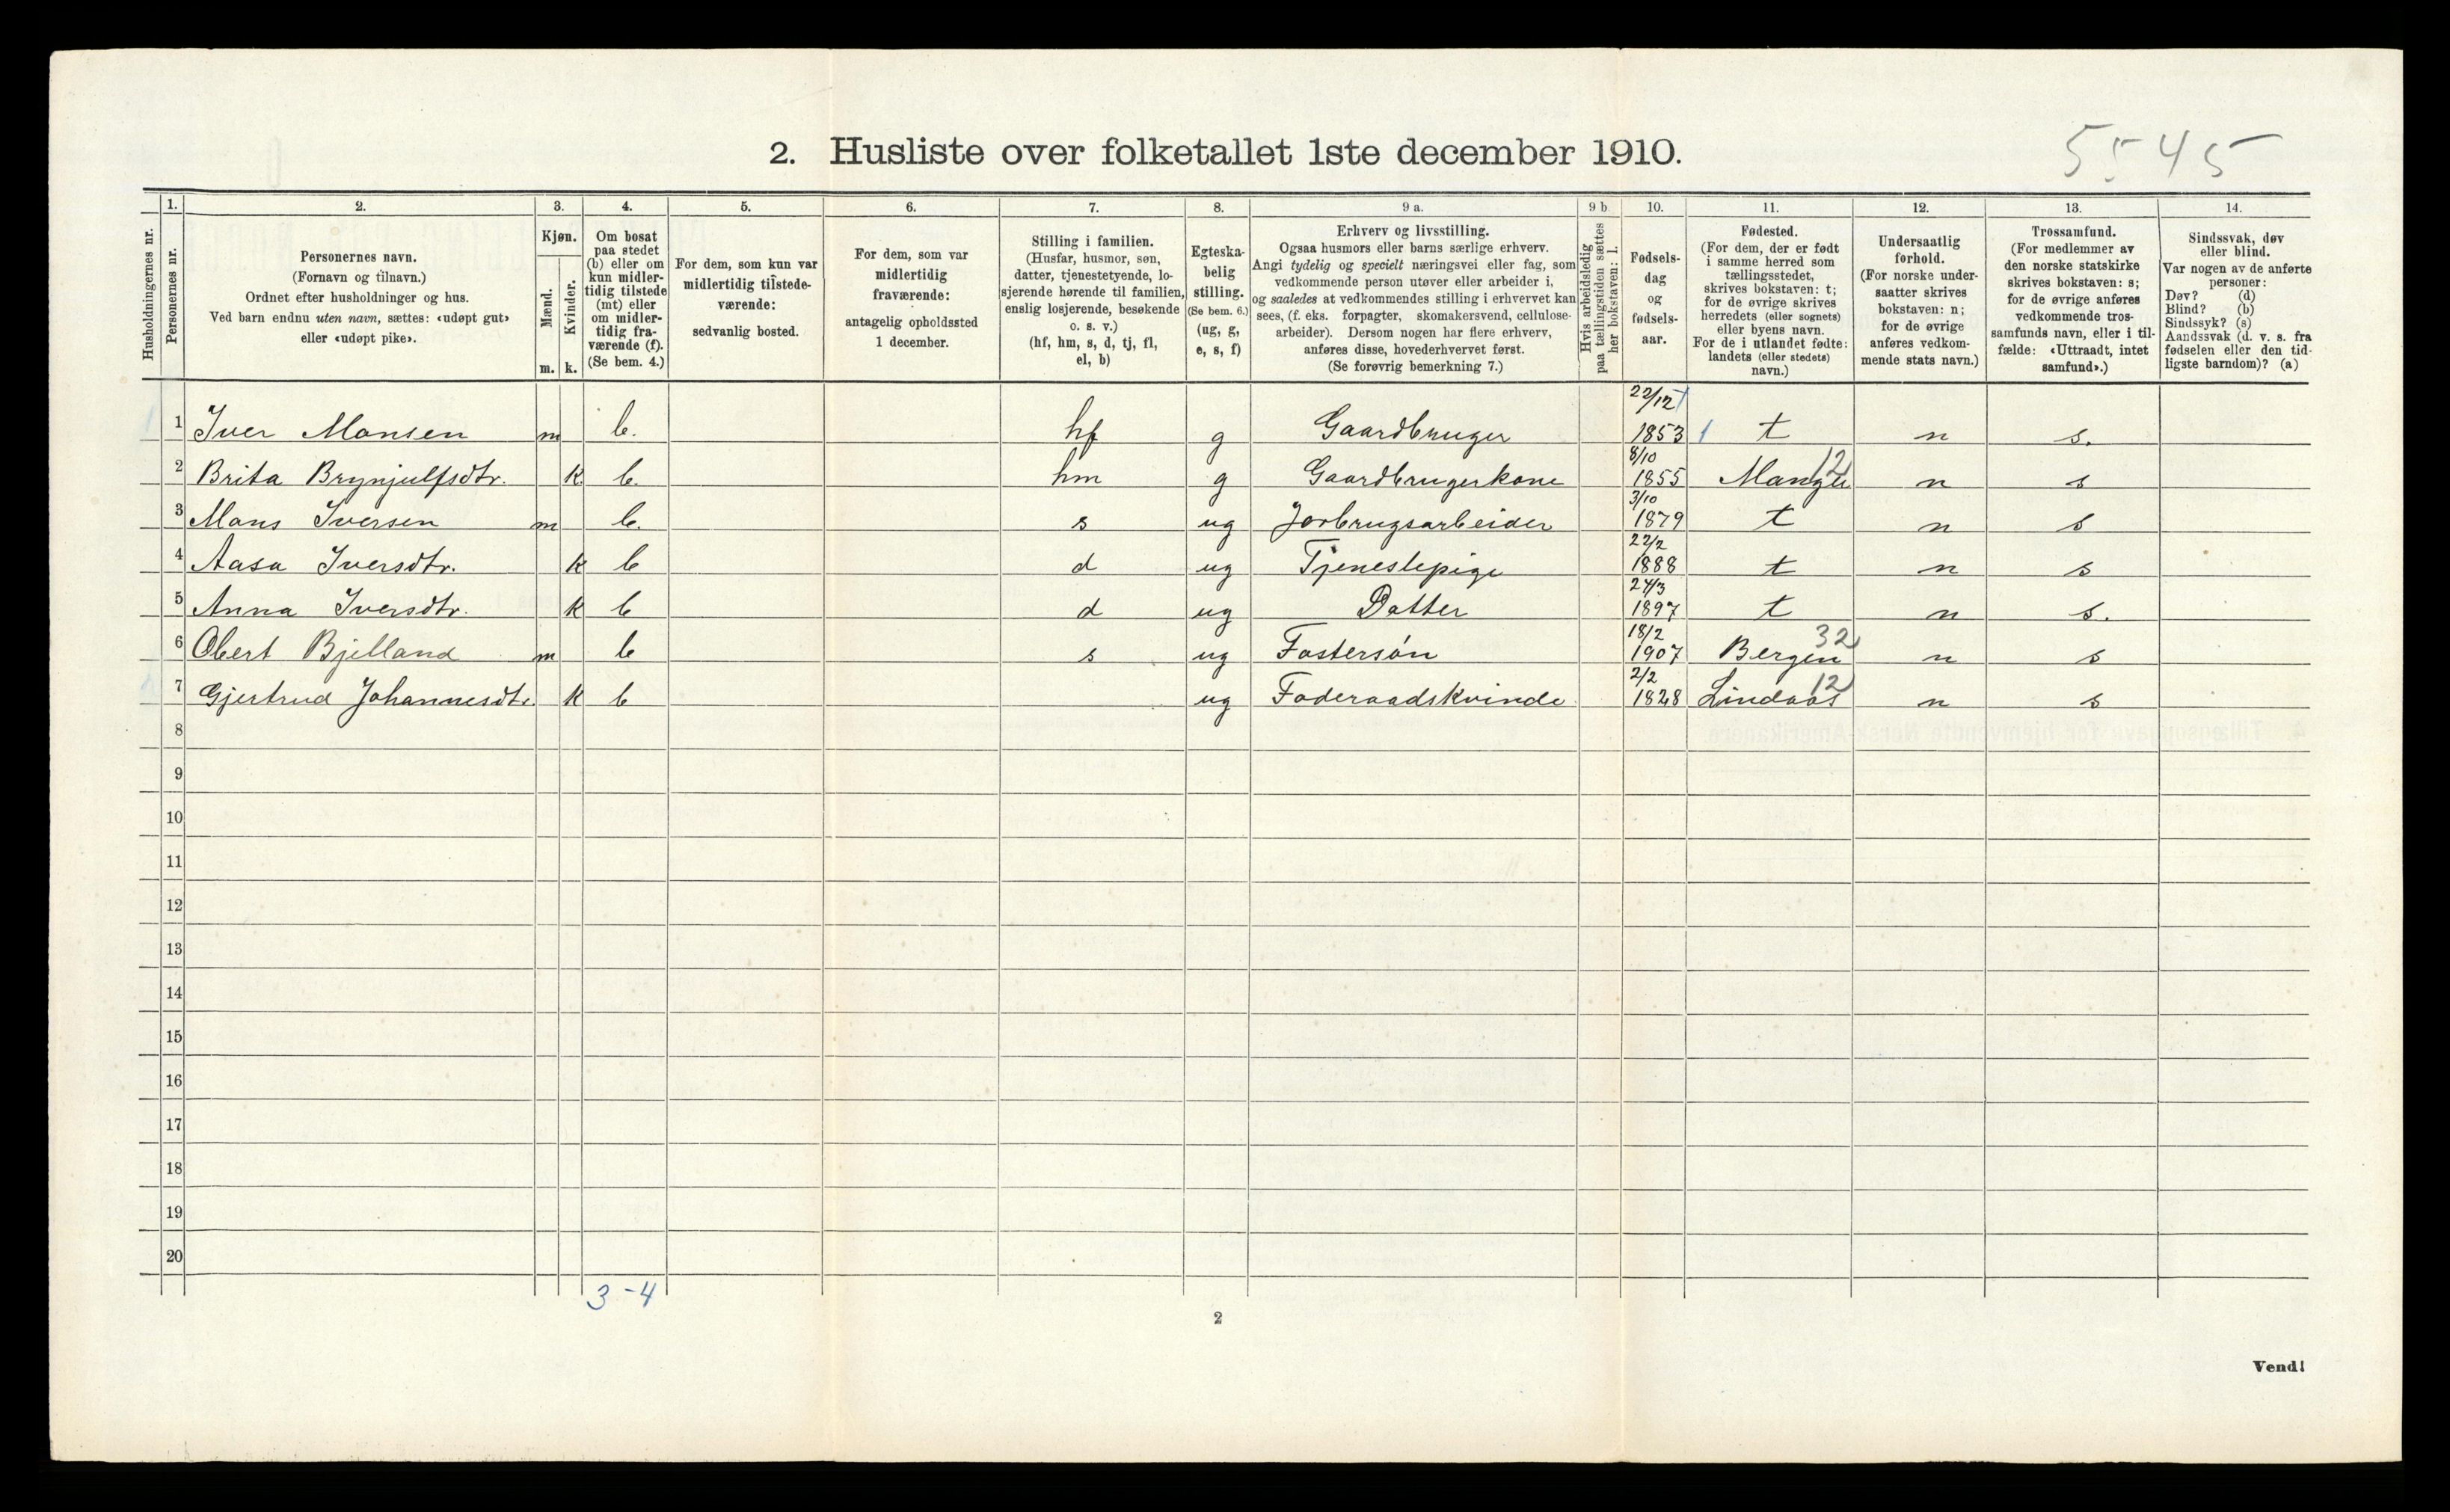 5545
2. Husliste over folketallet 1ste december 1910.
Husholdningernes nr.
1. Personernes nr.
2. Personernes navn.
(Fornavn og tilnavn.)
Ordnet efter husholdninger og hus.
Ved barn endnu uten navn, sættes: «udøpt gut»
eller «udøpt pike».
3. Kjøn.
Mænd. Kvinder.
m. k.
4. Om bosat
paa stedet
(b) eller om
kun midler-
tidig tilstede
(mt) eller
om midler-
tidig fra-
værende (f).
(Se bem. 4.)
5. For dem, som kun var
midlertidig tilstede-
værende:
sedvanlig bosted.
6. For dem, som var
midlertidig
fraværende:
antagelig opholdssted
1 december.
7. Stilling i familien.
(Husfar, husmor, søn,
datter, tjenestetyende, lo-
sjerende hørende til familien,
enslig losjerende, besøkende
o. s. v.)
(hf, hm, s, d, tj, fl,
el, b)
8. Egteska-
belig
stilling.
(Se bem. 6.)
(ug, g,
e, s, f)
9 a. Erhverv og livsstilling.
Ogsaa husmors eller barns særlige erhverv.
Angi tydelig og specielt næringsvei eller fag, som
vedkommende person utøver eller arbeider i,
og saaledes at vedkommendes stilling i erhvervet kan
sees, (f. eks. forpagter, skomakersvend, cellulose-
arbeider). Dersom nogen har flere erhverv,
anføres disse, hovederhvervet først.
(Se forøvrig bemerkning 7.)
9 b Hvis arbeidsledig
paa tællingstiden sættes
her bokstaven: l.
10. Fødsels-
dag
og
fødsels-
aar.
11. Fødested.
(For dem, der er født
i samme herred som
tællingsstedet,
skrives bokstaven: t;
for de øvrige skrives
herredets (eller sognets)
eller byens navn.
For de i utlandet fødte:
landets (eller stedets)
navn.)
12. Undersaatlig
forhold.
(For norske under-
saatter skrives
bokstaven: n;
for de øvrige
anføres vedkom-
mende stats navn.)
13. Trossamfund.
(For medlemmer av
den norske statskirke
skrives bokstaven: s;
for de øvrige anføres
vedkommende tros-
samfunds navn, eller i til-
fælde: «Uttraadt, intet
samfund».)
14. Sindssvak, døv
eller blind.
Var nogen av de anførte
personer:
Døv? (d)
Blind? (b)
Sindssyk? (s)
Aandssvak (d. v. s. fra
fødselen eller den tid-
ligste barndom)? (a)
1 1 Iver Monsen m b. hf g Gaardbruger 22/12 1853 1 t n s.
2 Brita Brynjulfsdtr. k b. hm g Gaardbrugerkone 8/10 1855 Manger 12 n s
3 Mons Iversen m b. s ug Jorbrugsarbeider 3/10 1879 t n s
4 Aasa Iversdtr. k b d ug Tjenestepige 22/2 1888 t n s
5 Anna Iversdtr. k b d ug Datter 24/3 1897 t n s.
6 Obert Bjelland m b s ug Fostersön 18/2 1907 Bergen 32 n s
7 Gjertrud Johannesdtr. k b ug Foderaadskvinde 2/2 1828 Lindaas 12 n s
8
9
10
11
12
13
14
15
16
17
18
19
20
3-4
2
Vend!